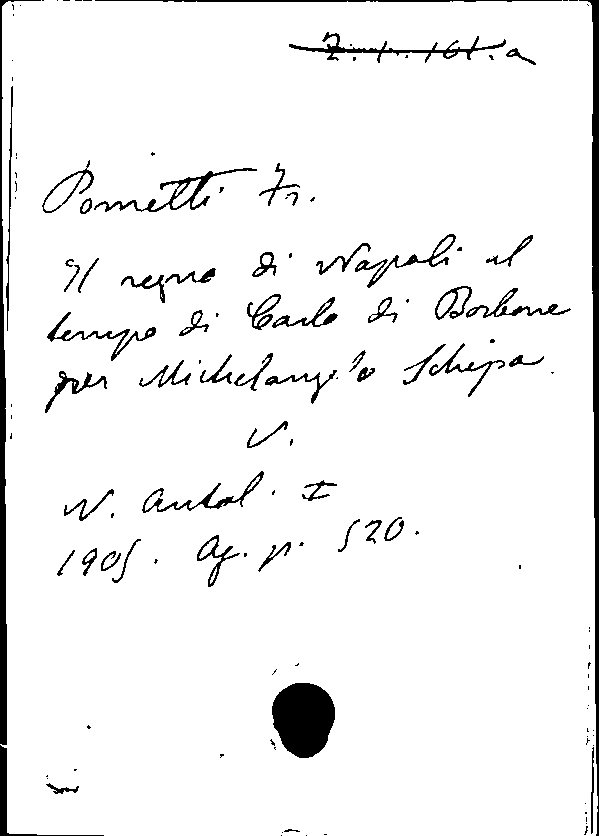 Z. 1. 161. a
Pometti Fr.
Il regno di Napoli al
tempo di Carlo di Borbone
per Michelangelo Schipa
V.
N. Antol. I
1905. Ag. p. 520.